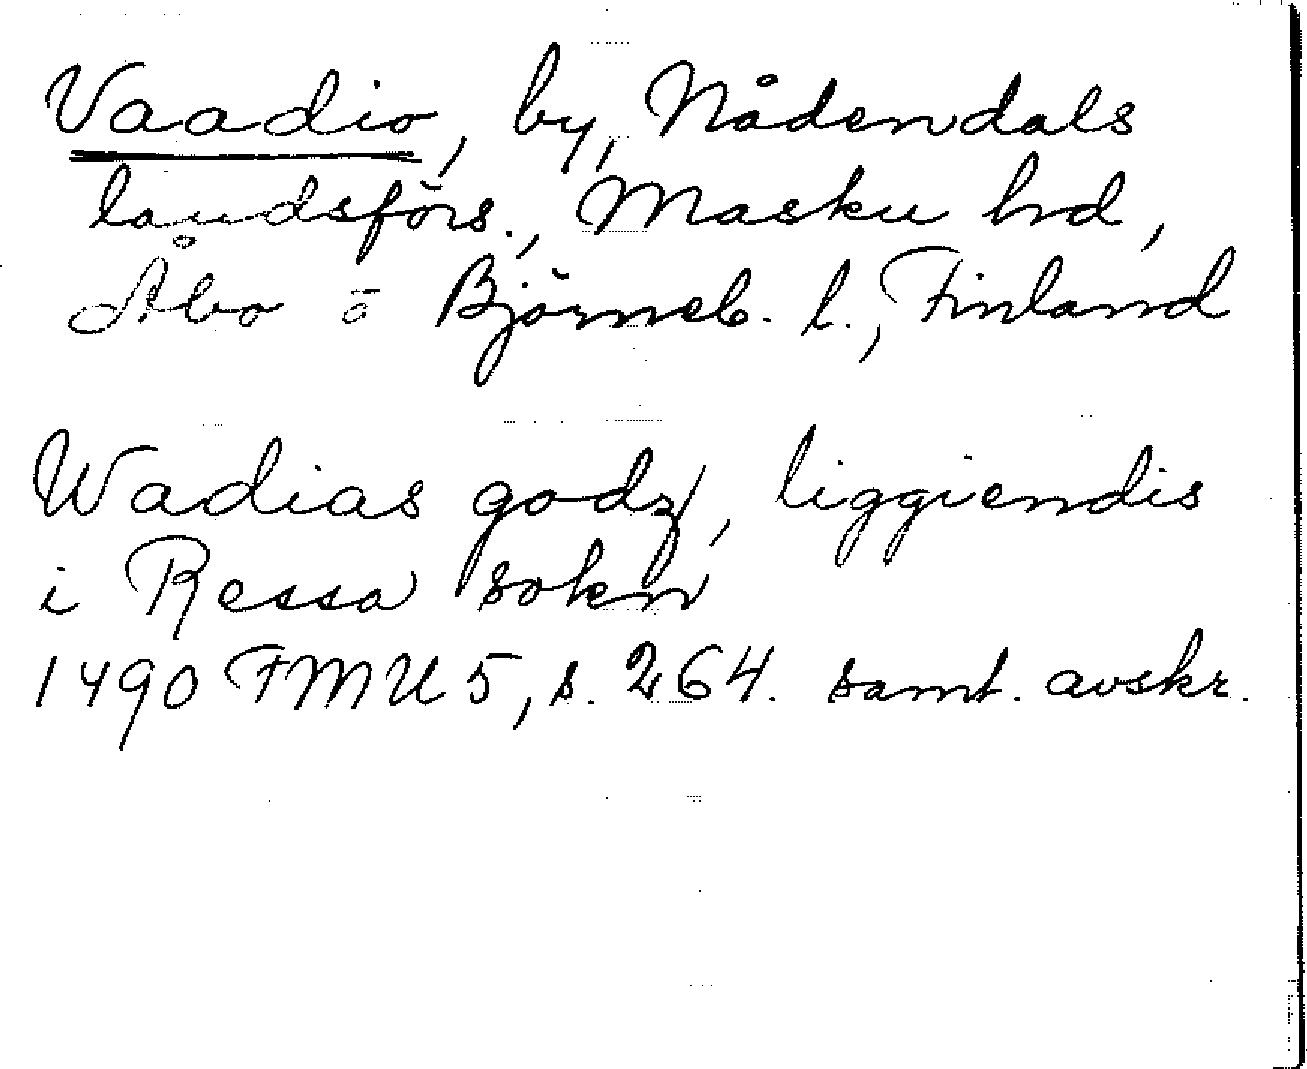 Vaadio, by, Nådendals
landsförs., Masku hd,
Åbo o Björneb. l., Finland
Wadias godz, liggiendis
i Ressa sokn
1490 FMU 5, s. 264. samt. avskr.